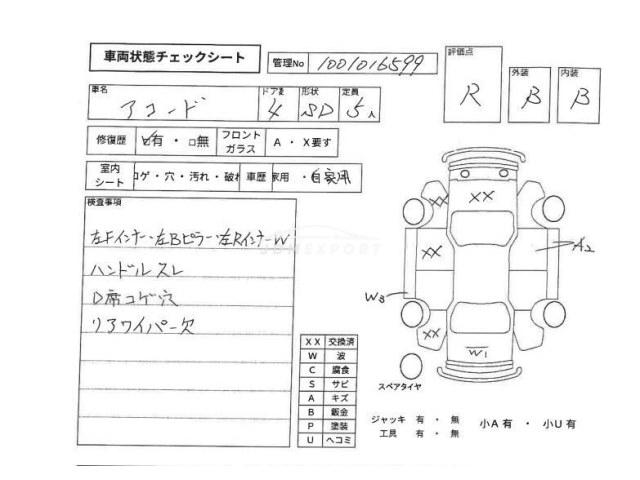 車両状態チェックシート
管理No 1001016599
評価点 R
外装 B
内装 B
車名 アコード
ドア数 4
形状 SD
定員 5人
修復歴 ☑有 ・ □無
フロントガラス A ・ X要す
室内シート コゲ・穴・汚れ・破れ
車歴 家用 ・ 自家用
検査事項
左Fインナー・左Bピラー・左RインナーW
ハンドルスレ
D席コゲ穴
リアワイパー欠
XX
XX
XX
XX
A2
W3
W1
スペアタイヤ
XX 交換済
W 波
C 腐食
S サビ
A キズ
B 鈑金
P 塗装
U ヘコミ
ジャッキ 有 ・ 無
工具 有 ・ 無
小A 有 ・ 小U 有
JDMEXPORT